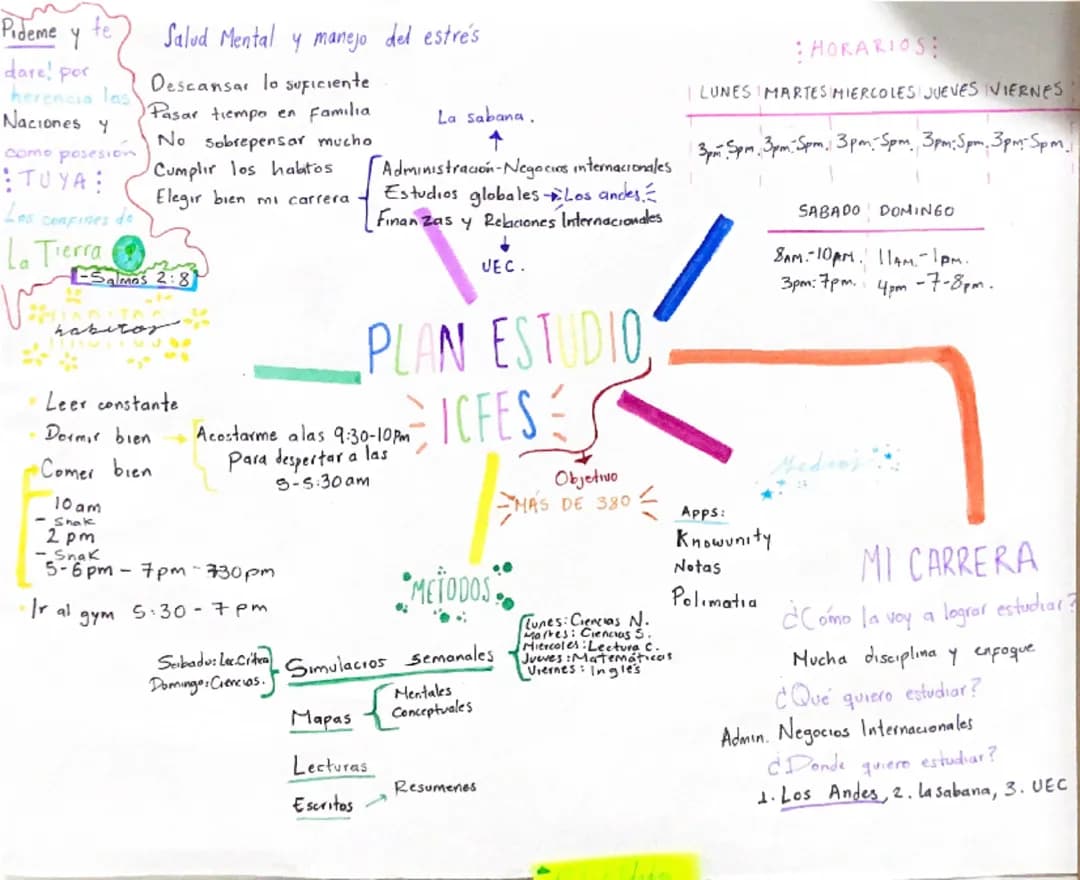 Pídeme y te
dare! por
herencia las
Naciones y
como posesión
TUYA:
Los confines de
La Tierra
-Salmos 2:8
Salud Mental y manejo del estrés
Descansar lo suficiente
Pasar tiempo en familia
No sobrepensar mucho
Cumplir los habitos
Elegir bien mi carrera
La sabana.
Administración-Negocios internacionales
Estudios globales → Los andes.
Finanzas y Relaciones Internacionales
UEC.
:HORARIOS:
LUNES MARTES MIERCOLES JUEVES VIERNES
3pm-5pm. 3pm-5pm. 3pm-5pm. 3pm-5pm. 3pm-5pm.
SABADO DOMINGO
8AM.-10AM. 11AM.-1pm.
3pm:7pm. 4pm-7-8pm.
PLAN ESTUDIO
ICFES
Objetivo
MÁS DE 380
habitos
Leer constante
Dormir bien → Acostarme alas 9:30-10pm
Para despertar a las
5-5:30am
Comer bien
10am
- Snak
2 pm
- Snak
5-6pm - 7pm - 730pm
Ir al gym 5:30-7pm
METODOS
Sabado: Lec.Crítica
Domingo: Ciencias.
Simulacros semanales
Lunes: Ciencias N.
Martes: Ciencias S.
Miercoles: Lectura C.
Jueves: Matemáticas
Viernes: Inglés
Mapas
Mentales
Conceptuales
Lecturas
Escritos → Resumenes
Medios
Apps:
Knowunity
Notas
Polimatia
MI CARRERA
¿Cómo la voy a lograr estudiar?
Mucha disciplina y enfoque
¿Qué quiero estudiar?
Admin. Negocios Internacionales
¿Donde quiero estudiar?
1. Los Andes, 2. la sabana, 3. UEC